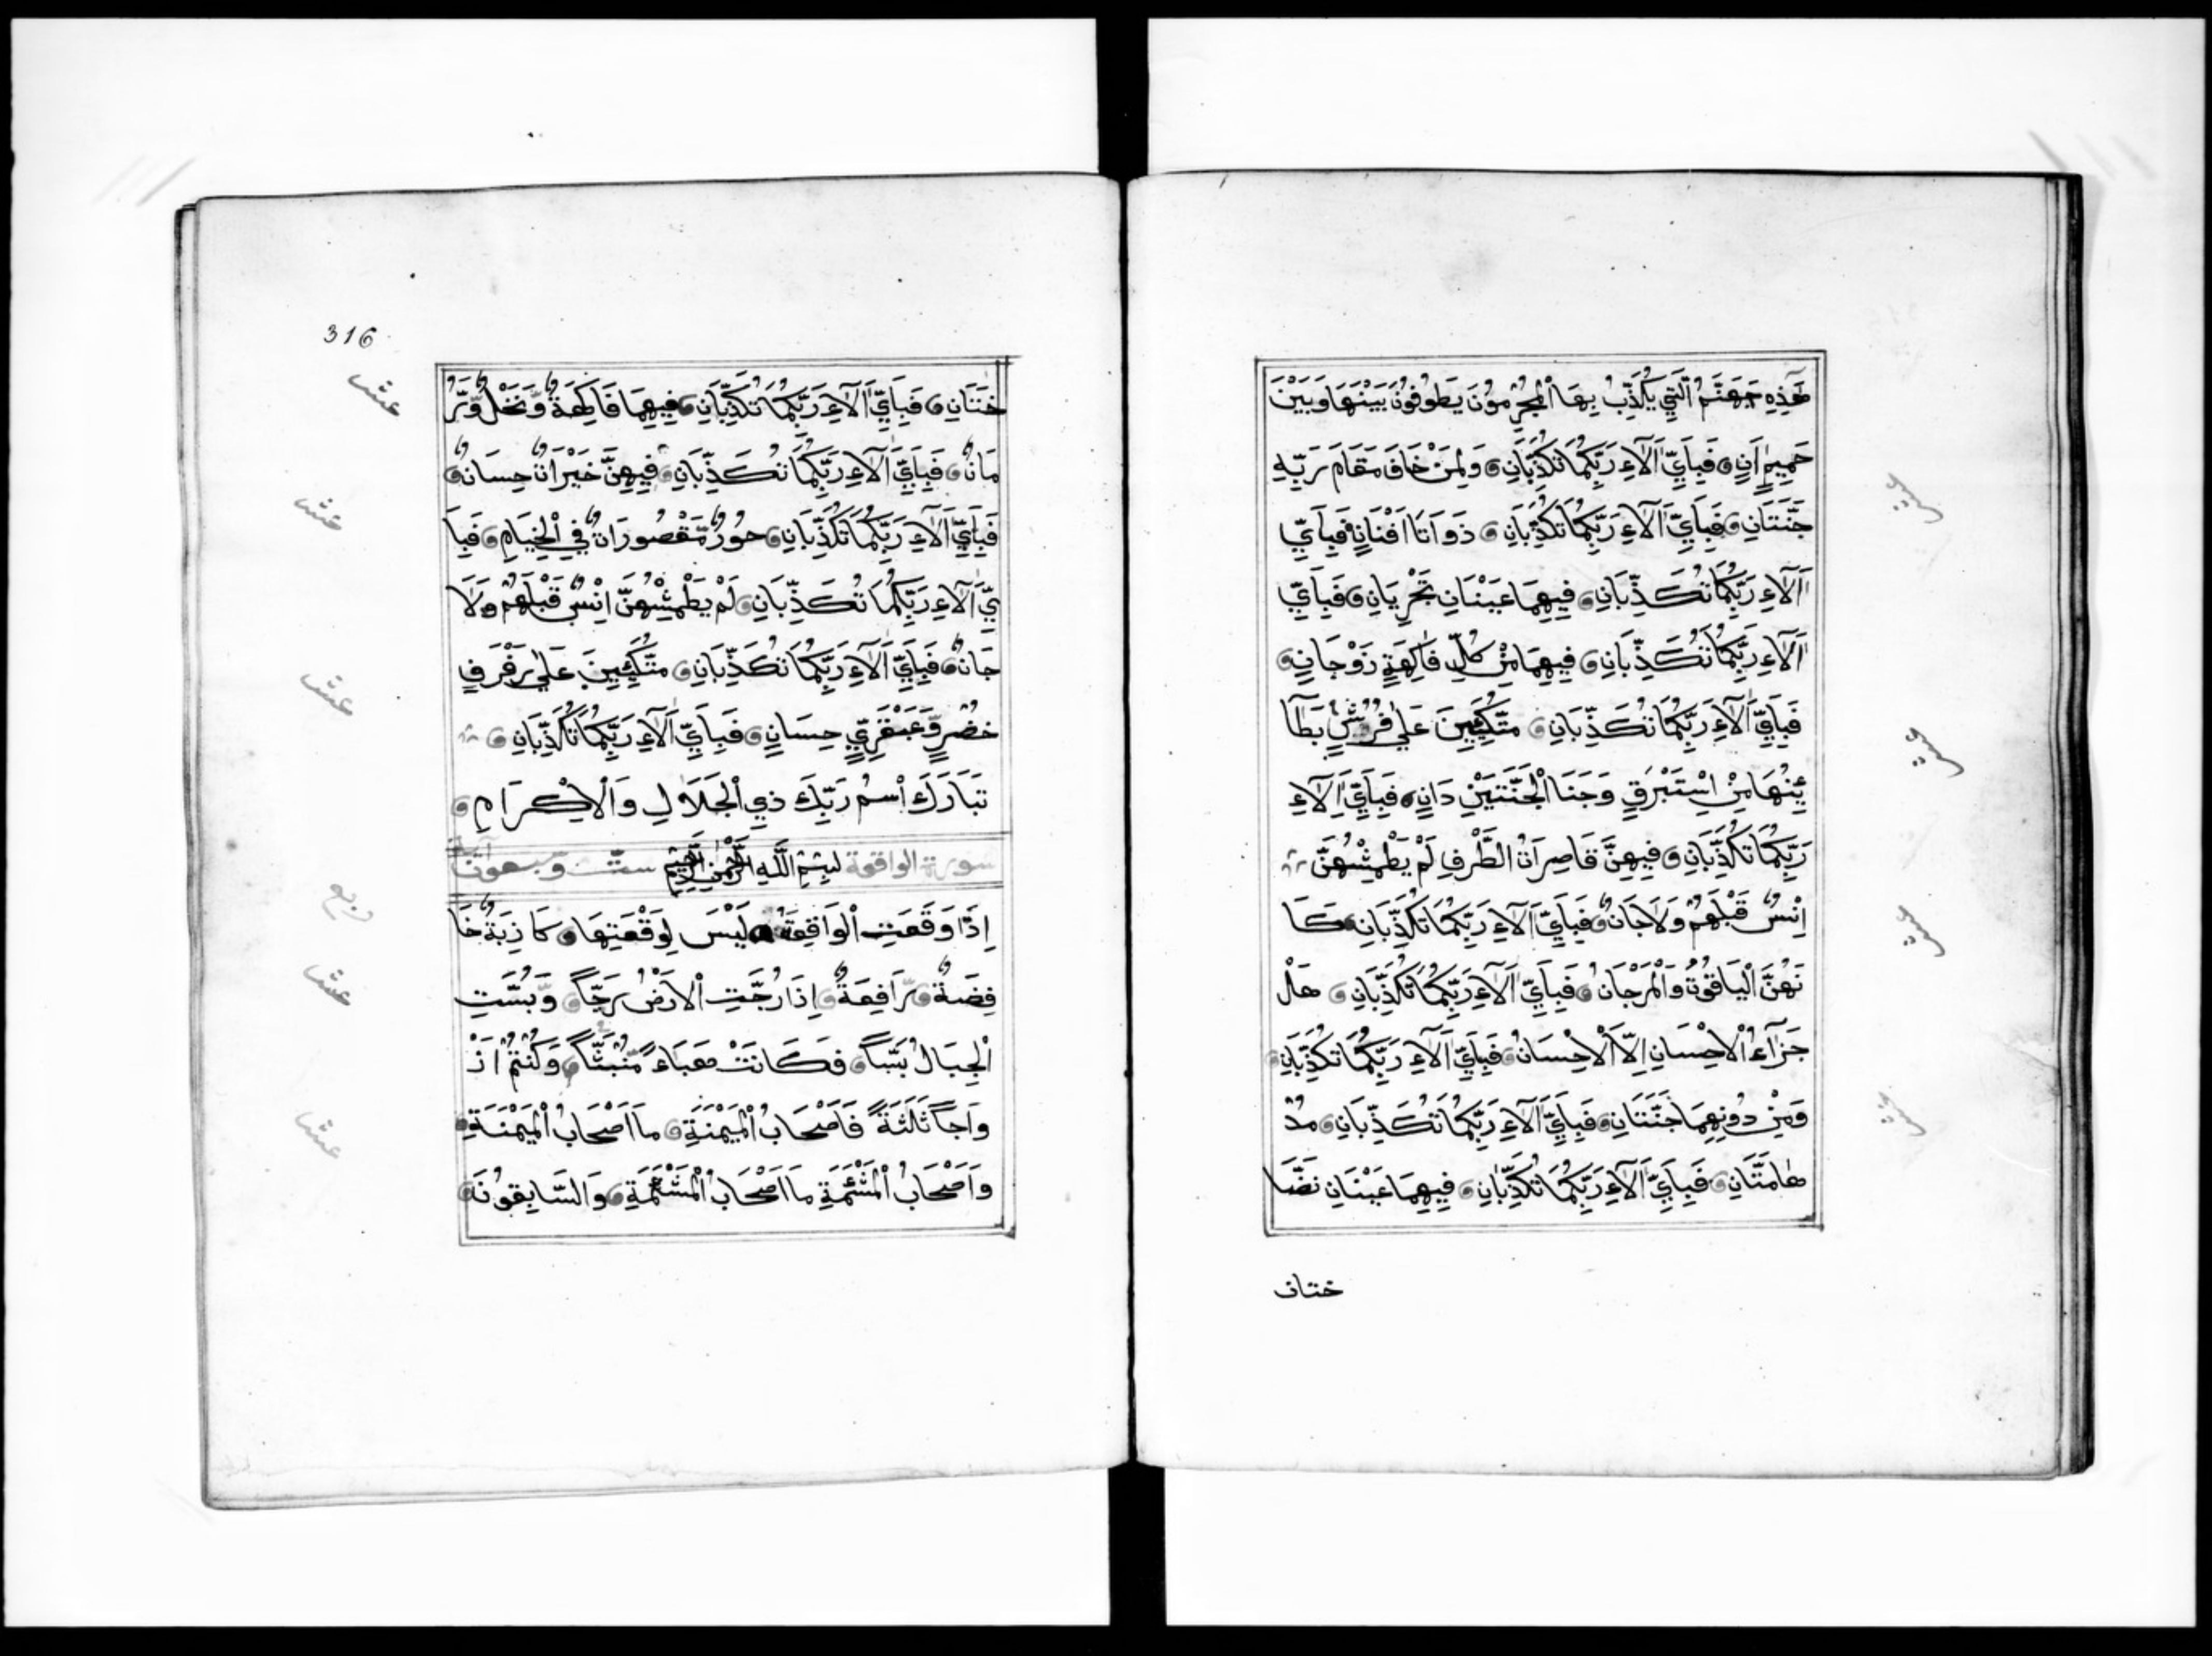 هَذِهِ جَهَنَّمُ الَّتِي يُكَذِّبُ بِهَا الْمُجْرِمُونَ يَطُوفُونَ بَيْنَهَا وَبَيْنَ
حَمِيمٍ اَنٍ فَبِاَيِّ اَلَآءِ رَبِّكُمَا تُكَذِّبَانِ وَلِمَنْ خَافَ مَقَامَ رَبِّهِ
جَنَّتَانِ فَبِاَيِّ اَلَآءِ رَبِّكُمَا تُكَذِّبَانِ ذَوَاتَا اَفْنَانٍ فَبِاَيِّ
اَلَآءِ رَبِّكُمَا تُكَذِّبَانِ فِيهِمَا عَيْنَانِ تَجْرِيَانِ فَبِاَيِّ
اَلَآءِ رَبِّكُمَا تُكَذِّبَانِ فِيهِمَا مِنْ كُلِّ فَاكِهَةٍ زَوْجَانِ
فَبِاَيِّ اَلَآءِ رَبِّكُمَا تُكَذِّبَانِ مُتَّكِئِينَ عَلَى فُرُشٍ بَطَآ
ئِنُهَا مِنْ اِسْتَبْرَقٍ وَجَنَا الْجَنَّتَيْنِ دَانٍ فَبِاَيِّ اَلَآءِ
رَبِّكُمَا تُكَذِّبَانِ فِيهِنَّ قَاصِرَاتُ الطَّرْفِ لَمْ يَطْمِثْهُنَّ
اِنْسٌ قَبْلَهُمْ وَلَا جَانٌّ فَبِاَيِّ اَلَآءِ رَبِّكُمَا تُكَذِّبَانِ كَا
نَهُنَّ الْيَاقُوتُ وَالْمَرْجَانُ فَبِاَيِّ اَلَآءِ رَبِّكُمَا تُكَذِّبَانِ هَلْ
جَزَآءُ الْاِحْسَانِ اِلَّا الْاِحْسَانُ فَبِاَيِّ اَلَآءِ رَبِّكُمَا تُكَذِّبَانِ
وَمِنْ دُونِهِمَا جَنَّتَانِ فَبِاَيِّ اَلَآءِ رَبِّكُمَا تُكَذِّبَانِ مُدْ
هَامَّتَانِ فَبِاَيِّ اَلَآءِ رَبِّكُمَا تُكَذِّبَانِ فِيهِمَا عَيْنَانِ نَضَّا
ختان
316
خَتَانِ فَبِاَيِّ اَلَآءِ رَبِّكُمَا تُكَذِّبَانِ فِيهِمَا فَاكِهَةٌ وَّنَخْلٌ وَّرُ
مَّانٌ فَبِاَيِّ اَلَآءِ رَبِّكُمَا تُكَذِّبَانِ فِيهِنَّ خَيْرَاتٌ حِسَانٌ
فَبِاَيِّ اَلَآءِ رَبِّكُمَا تُكَذِّبَانِ حُورٌ مَّقْصُورَاتٌ فِي الْخِيَامِ فَبِاَ
يِّ اَلَآءِ رَبِّكُمَا تُكَذِّبَانِ لَمْ يَطْمِثْهُنَّ اِنْسٌ قَبْلَهُمْ وَلَا
جَانٌّ فَبِاَيِّ اَلَآءِ رَبِّكُمَا تُكَذِّبَانِ مُتَّكِئِينَ عَلَى رَفْرَفٍ
خُضْرٍ وَّعَبْقَرِيٍّ حِسَانٍ فَبِاَيِّ اَلَآءِ رَبِّكُمَا تُكَذِّبَانِ
تَبَارَكَ اسْمُ رَبِّكَ ذِي الْجَلَالِ وَالْاِكْرَامِ
سورة الواقعة بِسْمِ اللَّهِ الرَّحْمٰنِ الرَّحِيمِ ستّ وتسعون آية
اِذَا وَقَعَتِ الْوَاقِعَةُ لَيْسَ لِوَقْعَتِهَا كَاذِبَةٌ خَا
فِضَةٌ رَّافِعَةٌ اِذَا رُجَّتِ الْاَرْضُ رَجًّا وَّبُسَّتِ
الْجِبَالُ بَسًّا فَكَانَتْ هَبَاءً مُّنْبَثًّا وَكُنْتُمْ اَزْ
وَاجًا ثَلَثَةً فَاَصْحَابُ الْمَيْمَنَةِ مَا اَصْحَابُ الْمَيْمَنَةِ
وَاَصْحَابُ الْمَشْئَمَةِ مَا اَصْحَابُ الْمَشْئَمَةِ وَالسَّابِقُونَ
عشر
عشر
عشر
ربع
عشر
عشر